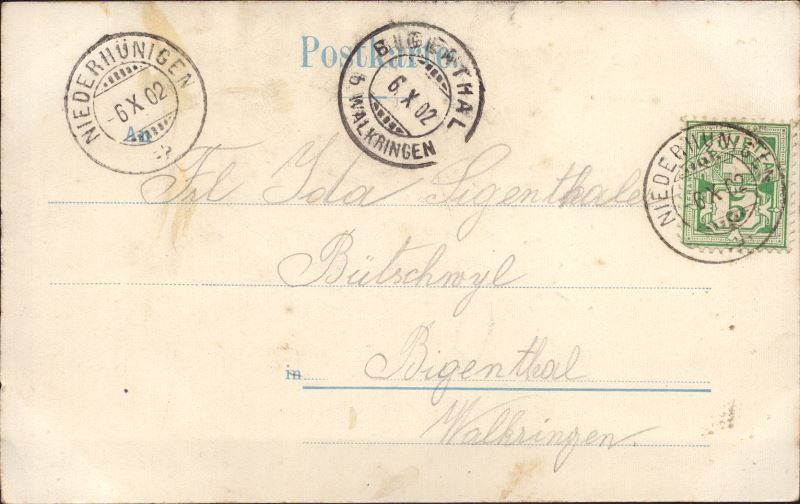 Postkarte.
NIEDERHÜNIGEN
-6 X 02
BIGENTHAL
6. X 02
WALKRINGEN
An
Frl Ida Sigenthaler
NIEDERHÜNIGEN
-6 X 02
5
Bütschwyl
in Bigenthal
Walkringen.